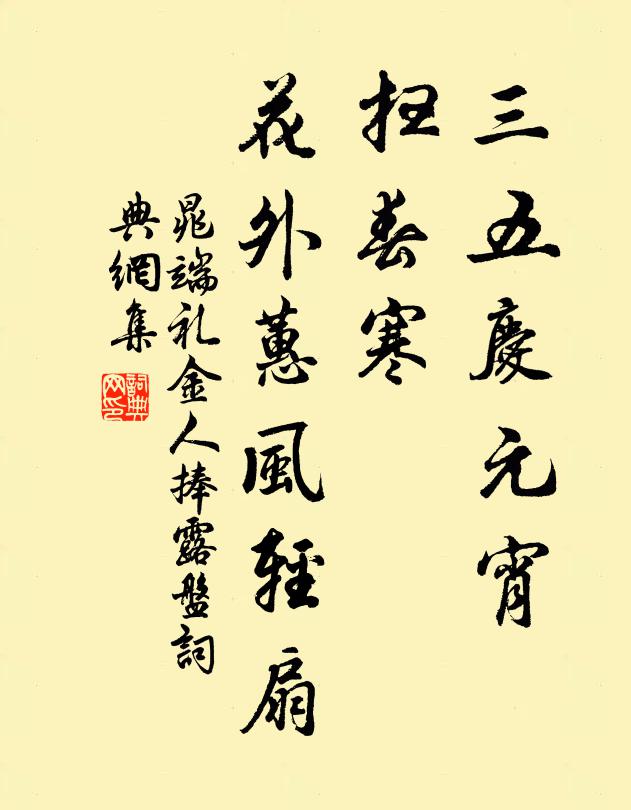 三五慶元宵
扫春寒
花外蕙風輕扇
晁端礼金人捧露盤詞
典網集
詞典
网印